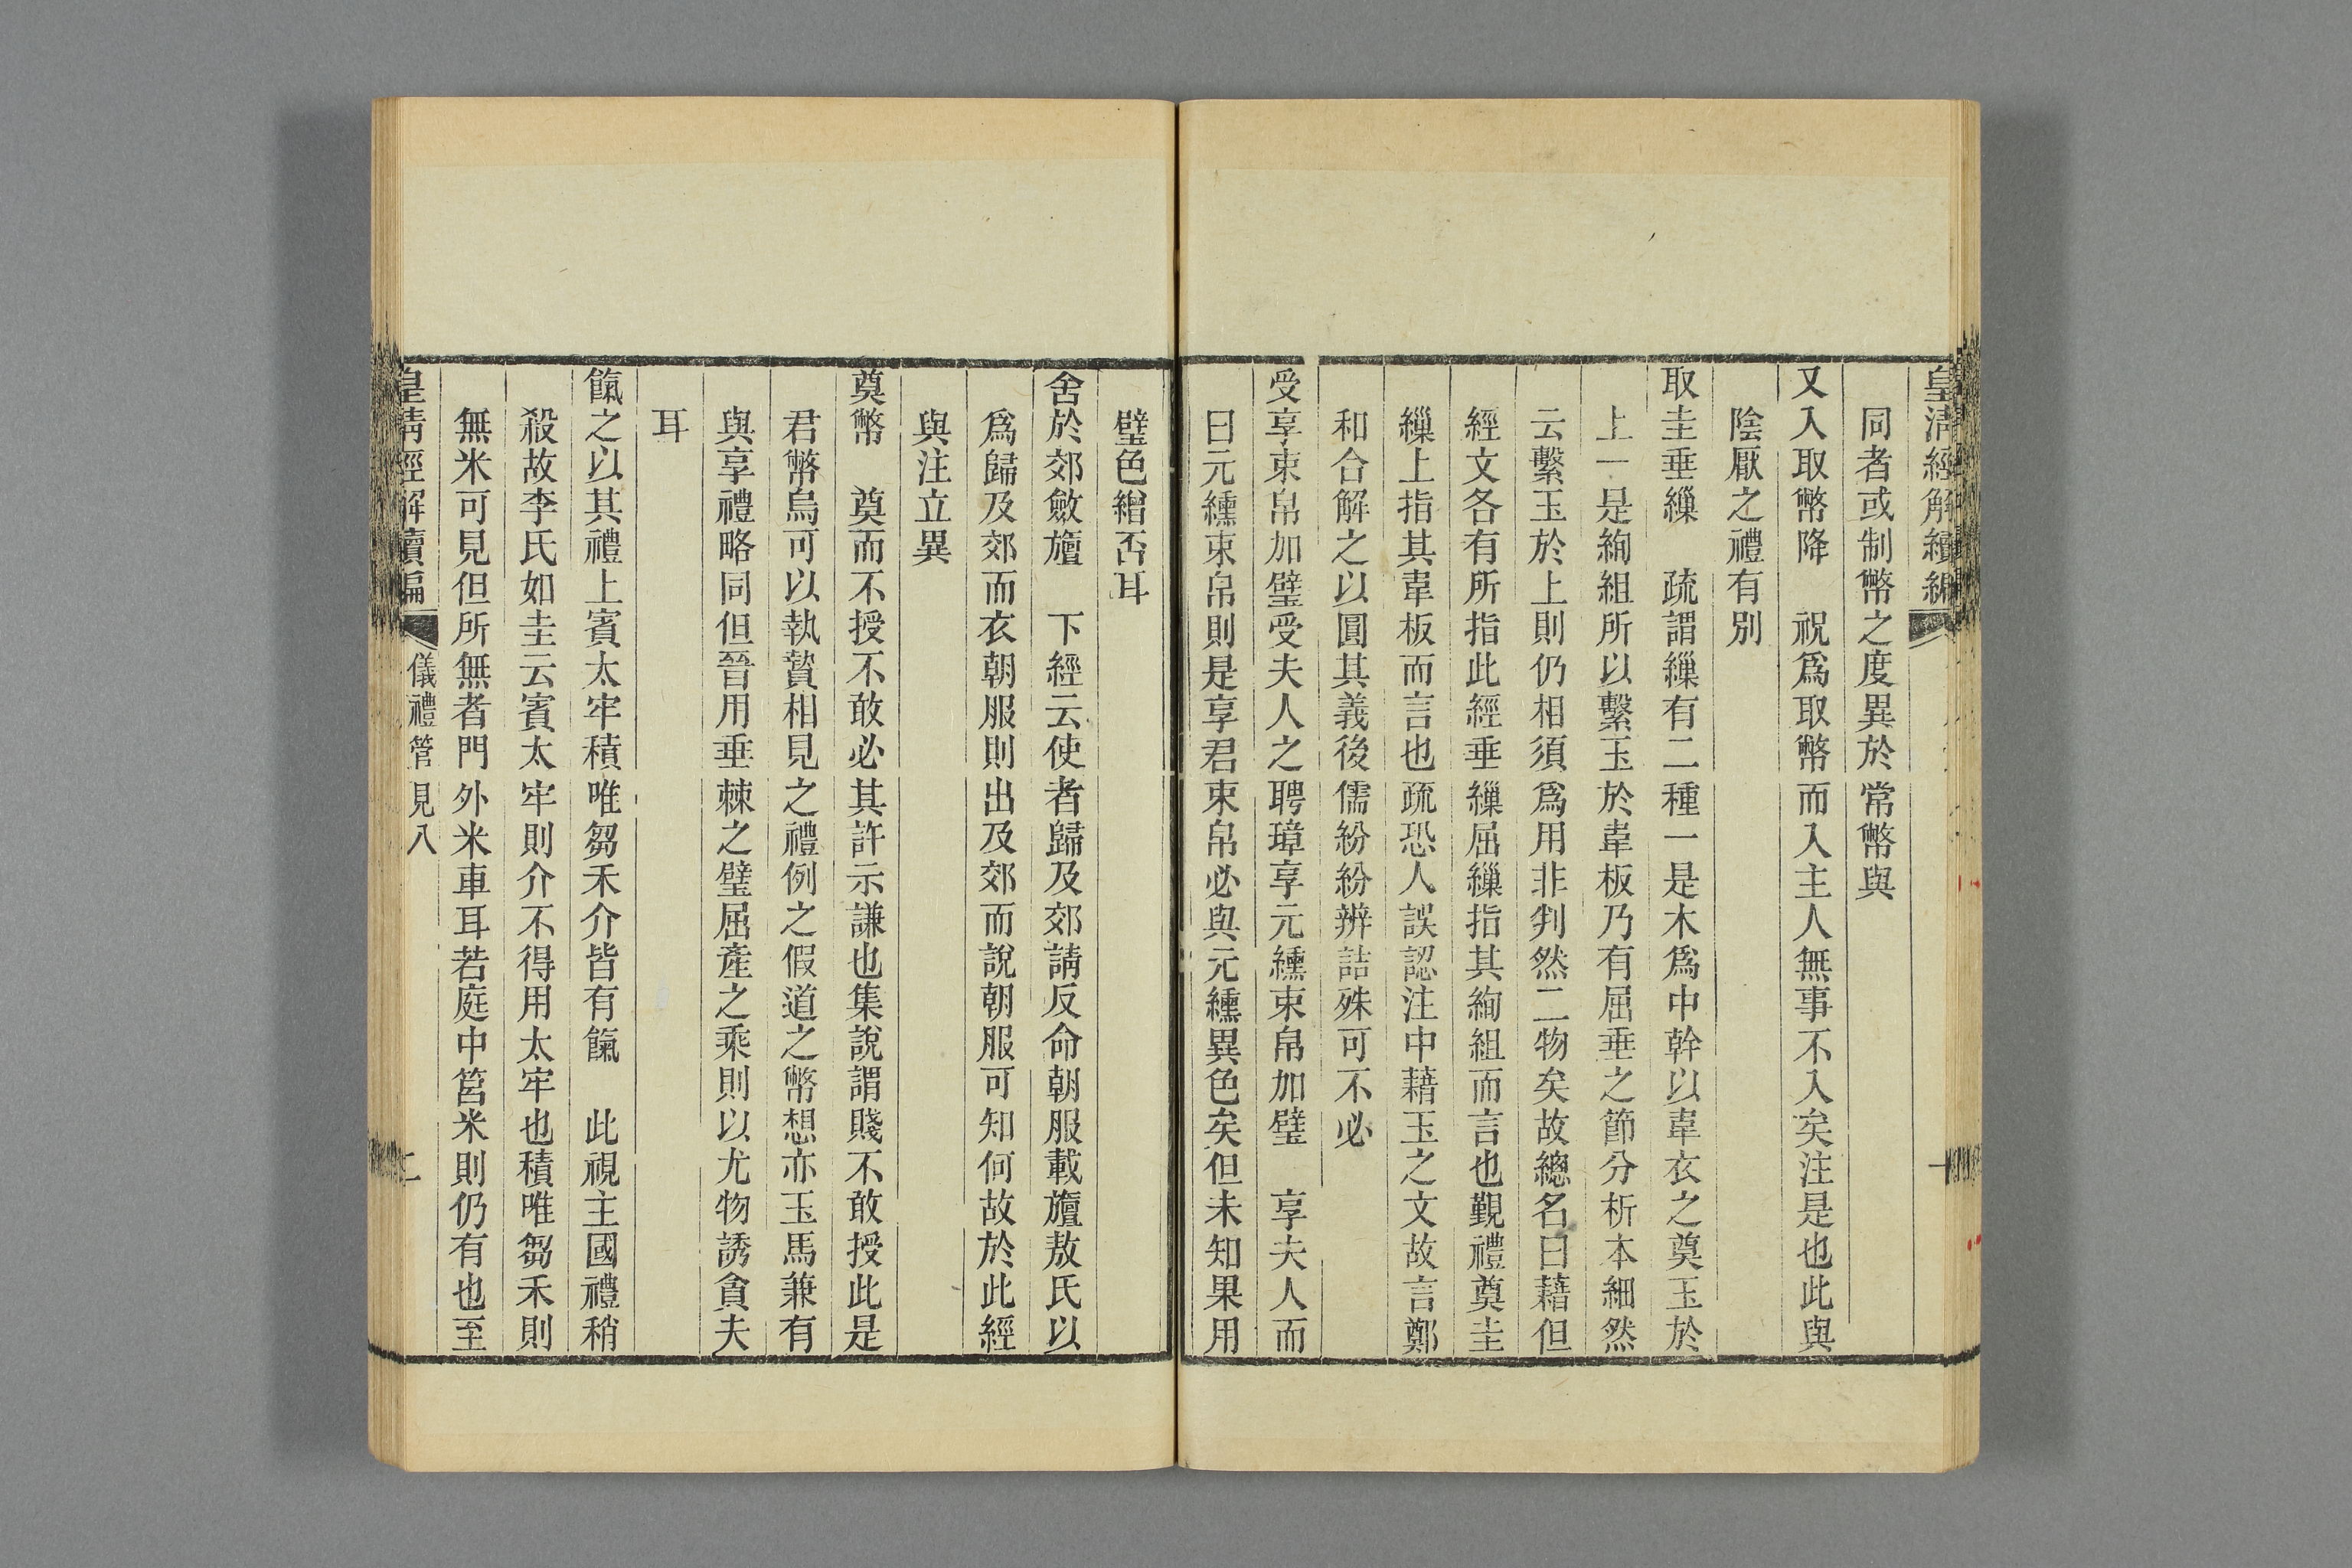 皇清經解續編
同者或制幣之度異於常幣與
又入取幣降　祝爲取幣而入主人無事不入矣注是也此與
陰厭之禮有別
取圭垂繅　疏謂繅有二種一是木爲中幹以韋衣之奠玉於
上一是絢組所以繫玉於韋板乃有屈垂之節分析本細然
云繫玉於上則仍相須爲用非判然二物矣故總名曰藉但
經文各有所指此經垂繅屈繅指其絢組而言也覲禮奠圭
繅上指其韋板而言也疏恐人誤認注中藉玉之文故言鄭
和合解之以圓其義後儒紛紛辨詰殊可不必
受享束帛加璧受夫人之聘璋享元纁束帛加璧　享夫人而
曰元纁束帛則是享君束帛必與元纁異色矣但未知果用
璧色繒否耳
舍於郊斂旜　下經云使者歸及郊請反命朝服載旜敖氏以
爲歸及郊而衣朝服則出及郊而說朝服可知何故於此經
與注立異
奠幣　奠而不授不敢必其許示謙也集說謂賤不敢授此是
君幣烏可以執贄相見之禮例之假道之幣想亦玉馬兼有
與享禮略同但晉用垂棘之璧屈產之乘則以尤物誘貪夫
耳
餼之以其禮上賓太牢積唯芻禾介皆有餼　此視主國禮稍
殺故李氏如圭云賓太牢則介不得用太牢也積唯芻禾則
無米可見但所無者門外米車耳若庭中筥米則仍有也至
皇清經解續編　儀禮管見八　二